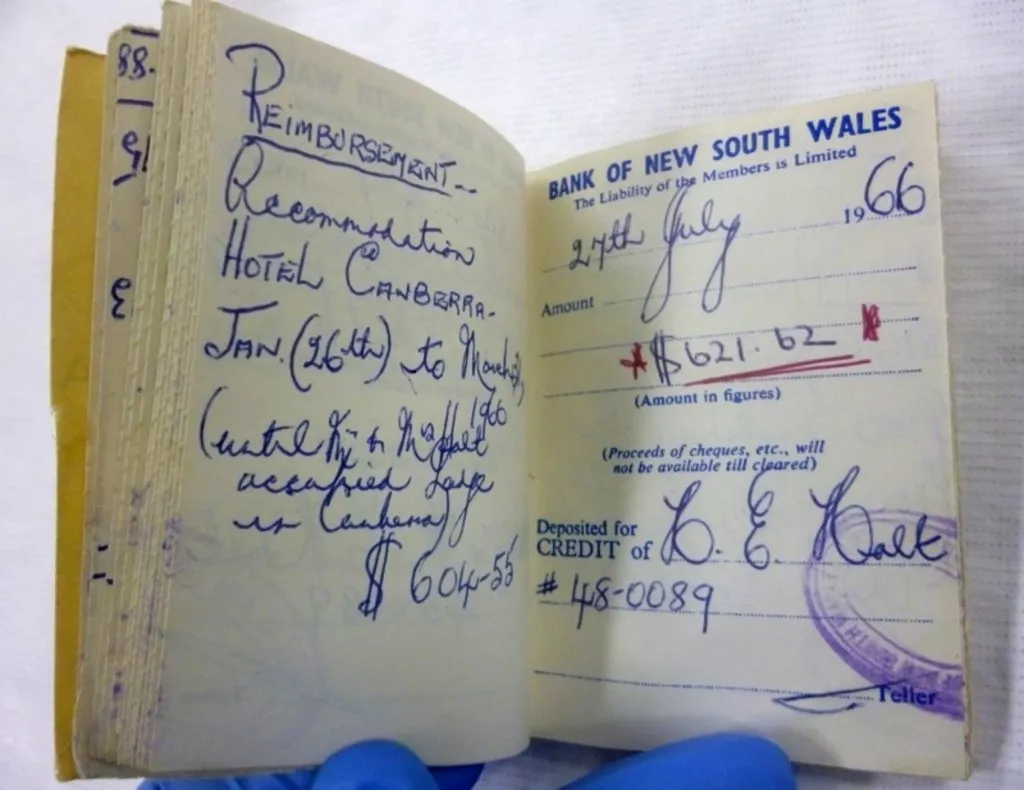 88.
15
3
REIMBURSEMENT—
Accommodation
HOTEL CANBERRA-
JAN. (26th) to March,
1966
(until Mr & Mrs Holt
occupied Lodge
in Canberra)
$ 604-55
BANK OF NEW SOUTH WALES
The Liability of the Members is Limited
27th July 1966
Amount
$621.62
(Amount in figures)
(Proceeds of cheques, etc., will
not be available till cleared)
Deposited for
CREDIT of H. E. Holt
# 48-0089
Teller